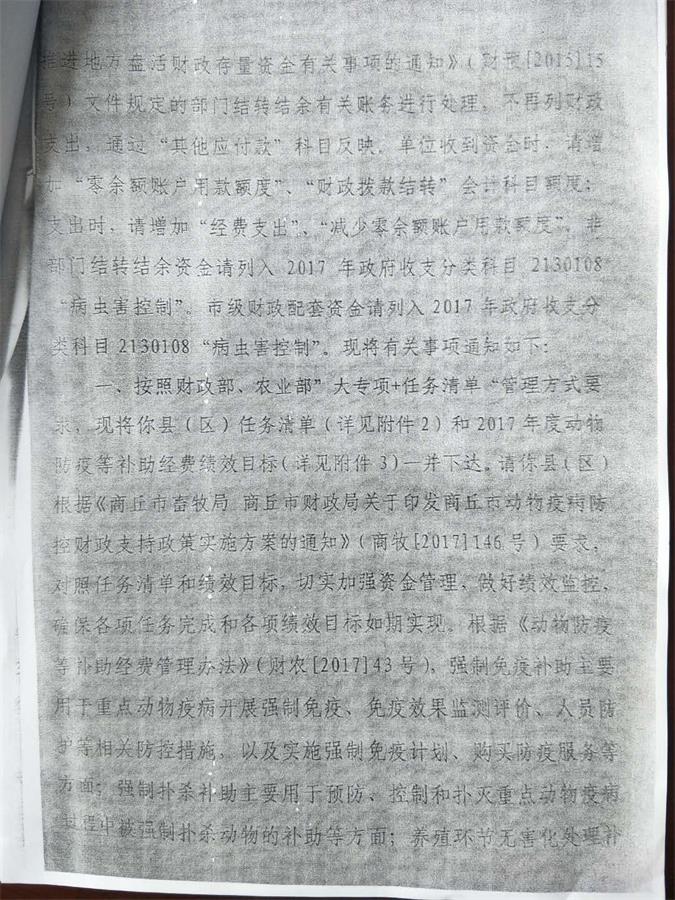 推进地方盘活财政存量资金有关事项的通知》（财预[2015]15
号）文件规定的部门结转结余有关账务进行处理，不再列财政
支出，通过“其他应付款”科目反映。单位收到资金时，请增
加“零余额账户用款额度”、“财政拨款结转”会计科目额度；
支出时，请增加“经费支出”、“减少零余额账户用款额度”。非
部门结转结余资金请列入 2017 年政府收支分类科目 2130108
“病虫害控制”。市级财政配套资金请列入 2017 年政府收支分
类科目 2130108“病虫害控制”。现将有关事项通知如下：
一、按照财政部、农业部”大专项+任务清单“管理方式要
求，现将你县（区）任务清单（详见附件 2）和 2017 年度动物
防疫等补助经费绩效目标（详见附件 3）一并下达。请你县（区）
根据《商丘市畜牧局 商丘市财政局关于印发商丘市动物疫病防
控财政支持政策实施方案的通知》（商牧[2017]146 号）要求，
对照任务清单和绩效目标，切实加强资金管理，做好绩效监控，
确保各项任务完成和各项绩效目标如期实现。根据《动物防疫
等补助经费管理办法》（财农[2017]43 号），强制免疫补助主要
用于重点动物疫病开展强制免疫、免疫效果监测评价、人员防
护等相关防控措施，以及实施强制免疫计划、购买防疫服务等
方面；强制扑杀补助主要用于预防、控制和扑灭重点动物疫病
过程中被强制扑杀动物的补助等方面；养殖环节无害化处理补